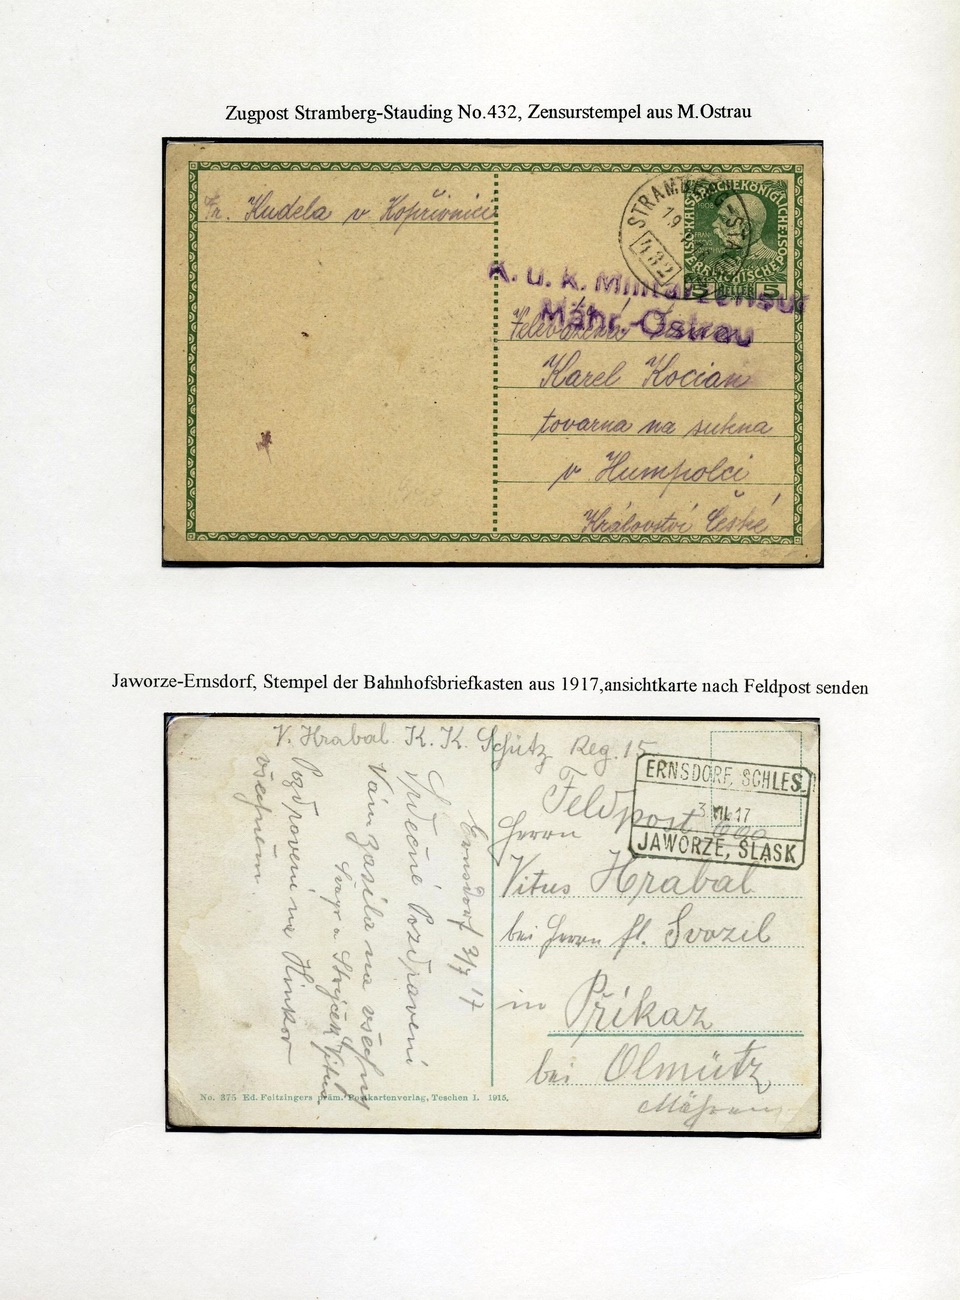 Zugpost Stramberg-Stauding No.432, Zensurstempel aus M.Ostrau
Fr. Kudela v Kopřivnici
STRAMBERG-STAUDING
19
432
KAISERLICHE KÖNIGLICHE
ÖSTERREICHISCHE POST
1908
5 HELLER 5
K. u. k. Militärzensur
Mähr.-Ostrau
Karel Kocian
tovarna na sukna
v Humpolci
Království České
Jaworze-Ernsdorf, Stempel der Bahnhofsbriefkasten aus 1917,ansichtkarte nach Feldpost senden
V. Hrabal. K. K. Schütz Reg. 15
Feldpost
ERNSDORF, SCHLES.
3 VII 17
JAWORZE, ŚLĄSK
Herrn
Vitus Hrabal
bei Herrn fl. Svozil
in Příkaz
bei Olmütz
Mähren
Ernsdorf 3/7 17
Srdečné Pozdravení
Vám zasíla na všechny
Švagr a Strýček Vitus.
Pozdravení na Hinkov
všechněm.
No. 375 Ed. Feitzingers präm. Postkartenverlag, Teschen I. 1915.